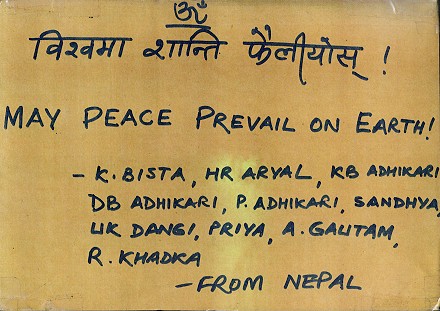 ॐ
विश्वमा शान्ति फैलीयोस् !
MAY PEACE PREVAIL ON EARTH!
- K. BISTA, HR ARYAL, KB ADHIKARI
DB ADHIKARI, P. ADHIKARI, SANDHYA,
UK DANGI, PRIYA, A. GAUTAM,
R. KHADKA
- FROM NEPAL